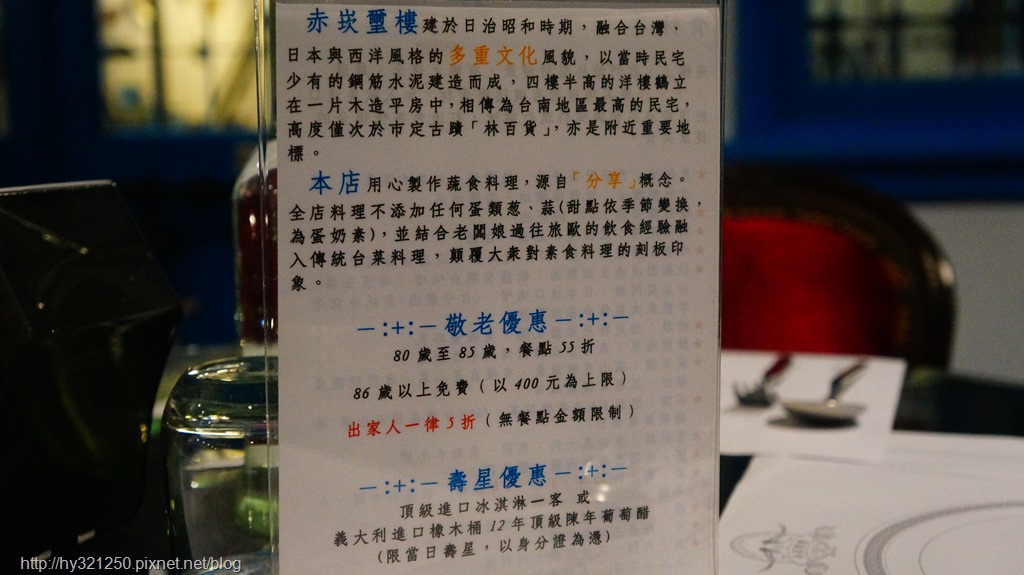 赤崁璽樓建於日治昭和時期，融合台灣、
日本與西洋風格的多重文化風貌，以當時民宅
少有的鋼筋水泥建造而成，四樓半高的洋樓鶴立
在一片木造平房中，相傳為台南地區最高的民宅，
高度僅次於市定古蹟「林百貨」，亦是附近重要地
標。
本店用心製作蔬食料理，源自「分享」概念。
全店料理不添加任何蛋類葱、蒜(甜點依季節變換，
為蛋奶素)，並結合老闆娘過往旅歐的飲食經驗融
入傳統台菜料理，顛覆大衆對素食料理的刻板印
象。
－:+:－敬老優惠－:+:－
80 歲至 85 歲，餐點 55 折
86 歲以上免費（以 400 元為上限）
出家人一律 5 折（無餐點金額限制）
－:+:－壽星優惠－:+:－
頂級進口冰淇淋一客 或
義大利進口橡木桶 12 年頂級陳年葡萄醋
(限當日壽星，以身分證為憑)
http://hy321250.pixnet.net/blog